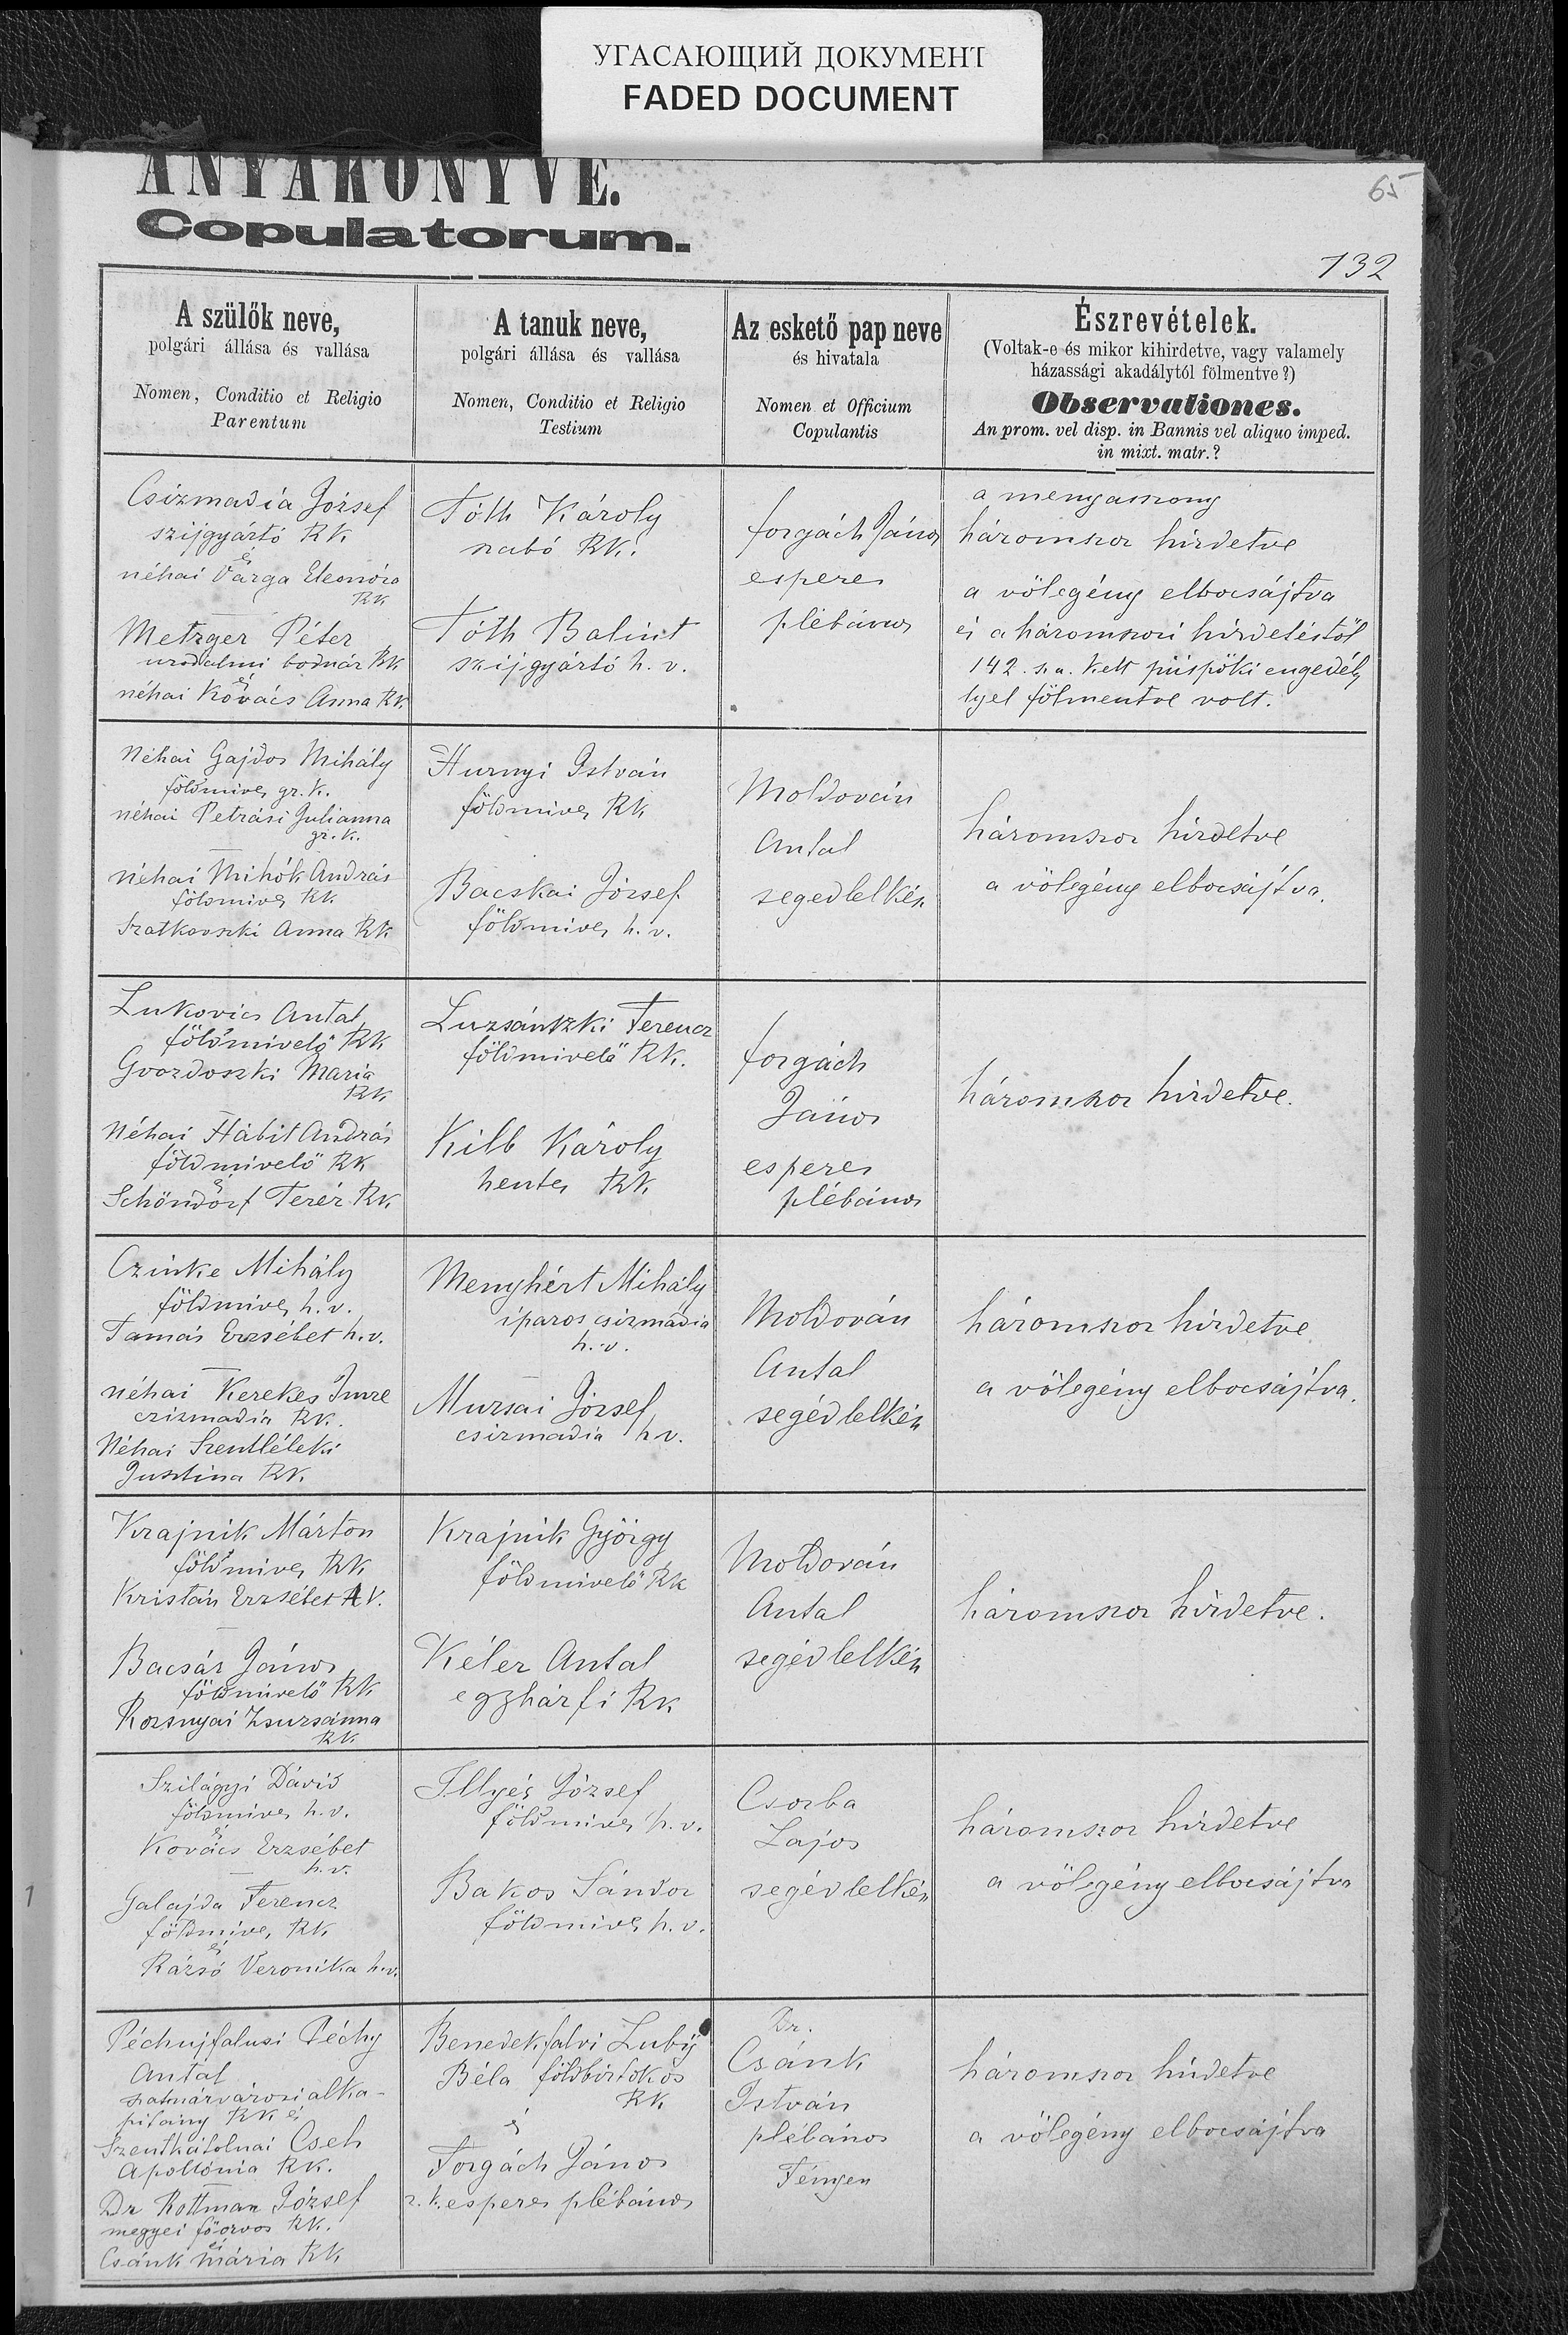 УГАСАЮЩИЙ ДОКУМЕНТ
FADED DOCUMENT
ANYAKÖNYVE.
Copulatorum.
65
132
A szülők neve,
polgári állása és vallása
Nomen, Conditio et Religio
Parentum
A tanuk neve,
polgári állása és vallása
Nomen, Conditio et Religio
Testium
Az eskető pap neve
és hivatala
Nomen et Officium
Copulantis
Észrevételek.
(Voltak-e és mikor kihirdetve, vagy valamely
házassági akadálytól fölmentve?)
Observationes.
An prom. vel disp. in Bannis vel aliquo imped.
in mixt. matr.?
Csizmadia József
szijgyártó RK
és
néhai Varga Eleonóra
RK
Metzger Péter
uradalmi bodnár RK
és
néhai Kovács Anna RK
Tóth Károly
szabó RK.
Tóth Balint
szijgyártó h. v.
forgách János
esperes
plébános
a menyasszony
háromszor hirdetve
a völegény elbocsájtva
és a háromszori hirdetéstöl
142. sz. a. kelt püspöki engedély
lyel fölmentve volt.
Néhai Gajdos Mihály
földmives gr. k.
néhai Petrási Julianna
gr. k.
néhai Mihók András
földmives RK
Szatkovszki Anna RK
Hurnyi István
földmives RK
Bacskai József
földmives h. v.
Moldován
Antal
segedlelkész
háromszor hirdetve
a völegény elbocsájtva.
Lukovics Antal
földmivelő RK
Gvozdoszki Maria
RK
Néhai Hábit András
földmivelő RK
és
Schöndorf Teréz RK
Luzsánszki Ferencz
földmivelő RK.
Kilb Károly
hentes RK
forgách
János
esperes
plébános
háromszor hirdetve.
Czinke Mihály
földmives h. v.
Tamás Erzsébet h. v.
néhai Kerekes Imre
czizmadia RK.
Néhai Szentléleki
Jusztina RK.
Menyhért Mihály
iparos csizmadia
h. v.
Murzsai József
csizmadia h. v.
Moldován
Antal
segédlelkész
háromszor hirdetve
a völegény elbocsájtva.
Krajnik Márton
földmives RK
Kristán Erzsébet RK.
Bacsár János
földmivelő RK
Rozsnyai Zsuzsánna
RK
Krajnik György
földmivelő RK
Kéler Antal
egyházfi RK
Moldován
Antal
segédlelkész
háromszor hirdetve.
Szilágyi Dávid
földmives h. v.
és
Kovács Erzsébet
h. v.
Galajda Ferencz
földmives RK
és
Rázsó Veronika h. v.
Illyés József
földmives h. v.
Bakos Sándor
földmives h. v.
Csorba
Lajos
segédlelkész
háromszor hirdetve
a völegény elbocsájtva
Péchujfalusi Péchy
Antal
szatmárvárosi alka-
pitány RK és
Szentkatolnai Cseh
Apollónia RK.
Dr Rottman József
megyei főorvos RK.
és
Csánk Mária RK
Benedekfalvi Luby
Béla földbirtokos
RK
és
Forgách János
r. k. esperes plébános
Dr.
Csánk
István
plébános
Fényen
háromszor hirdetve
a völegény elbocsájtva
1